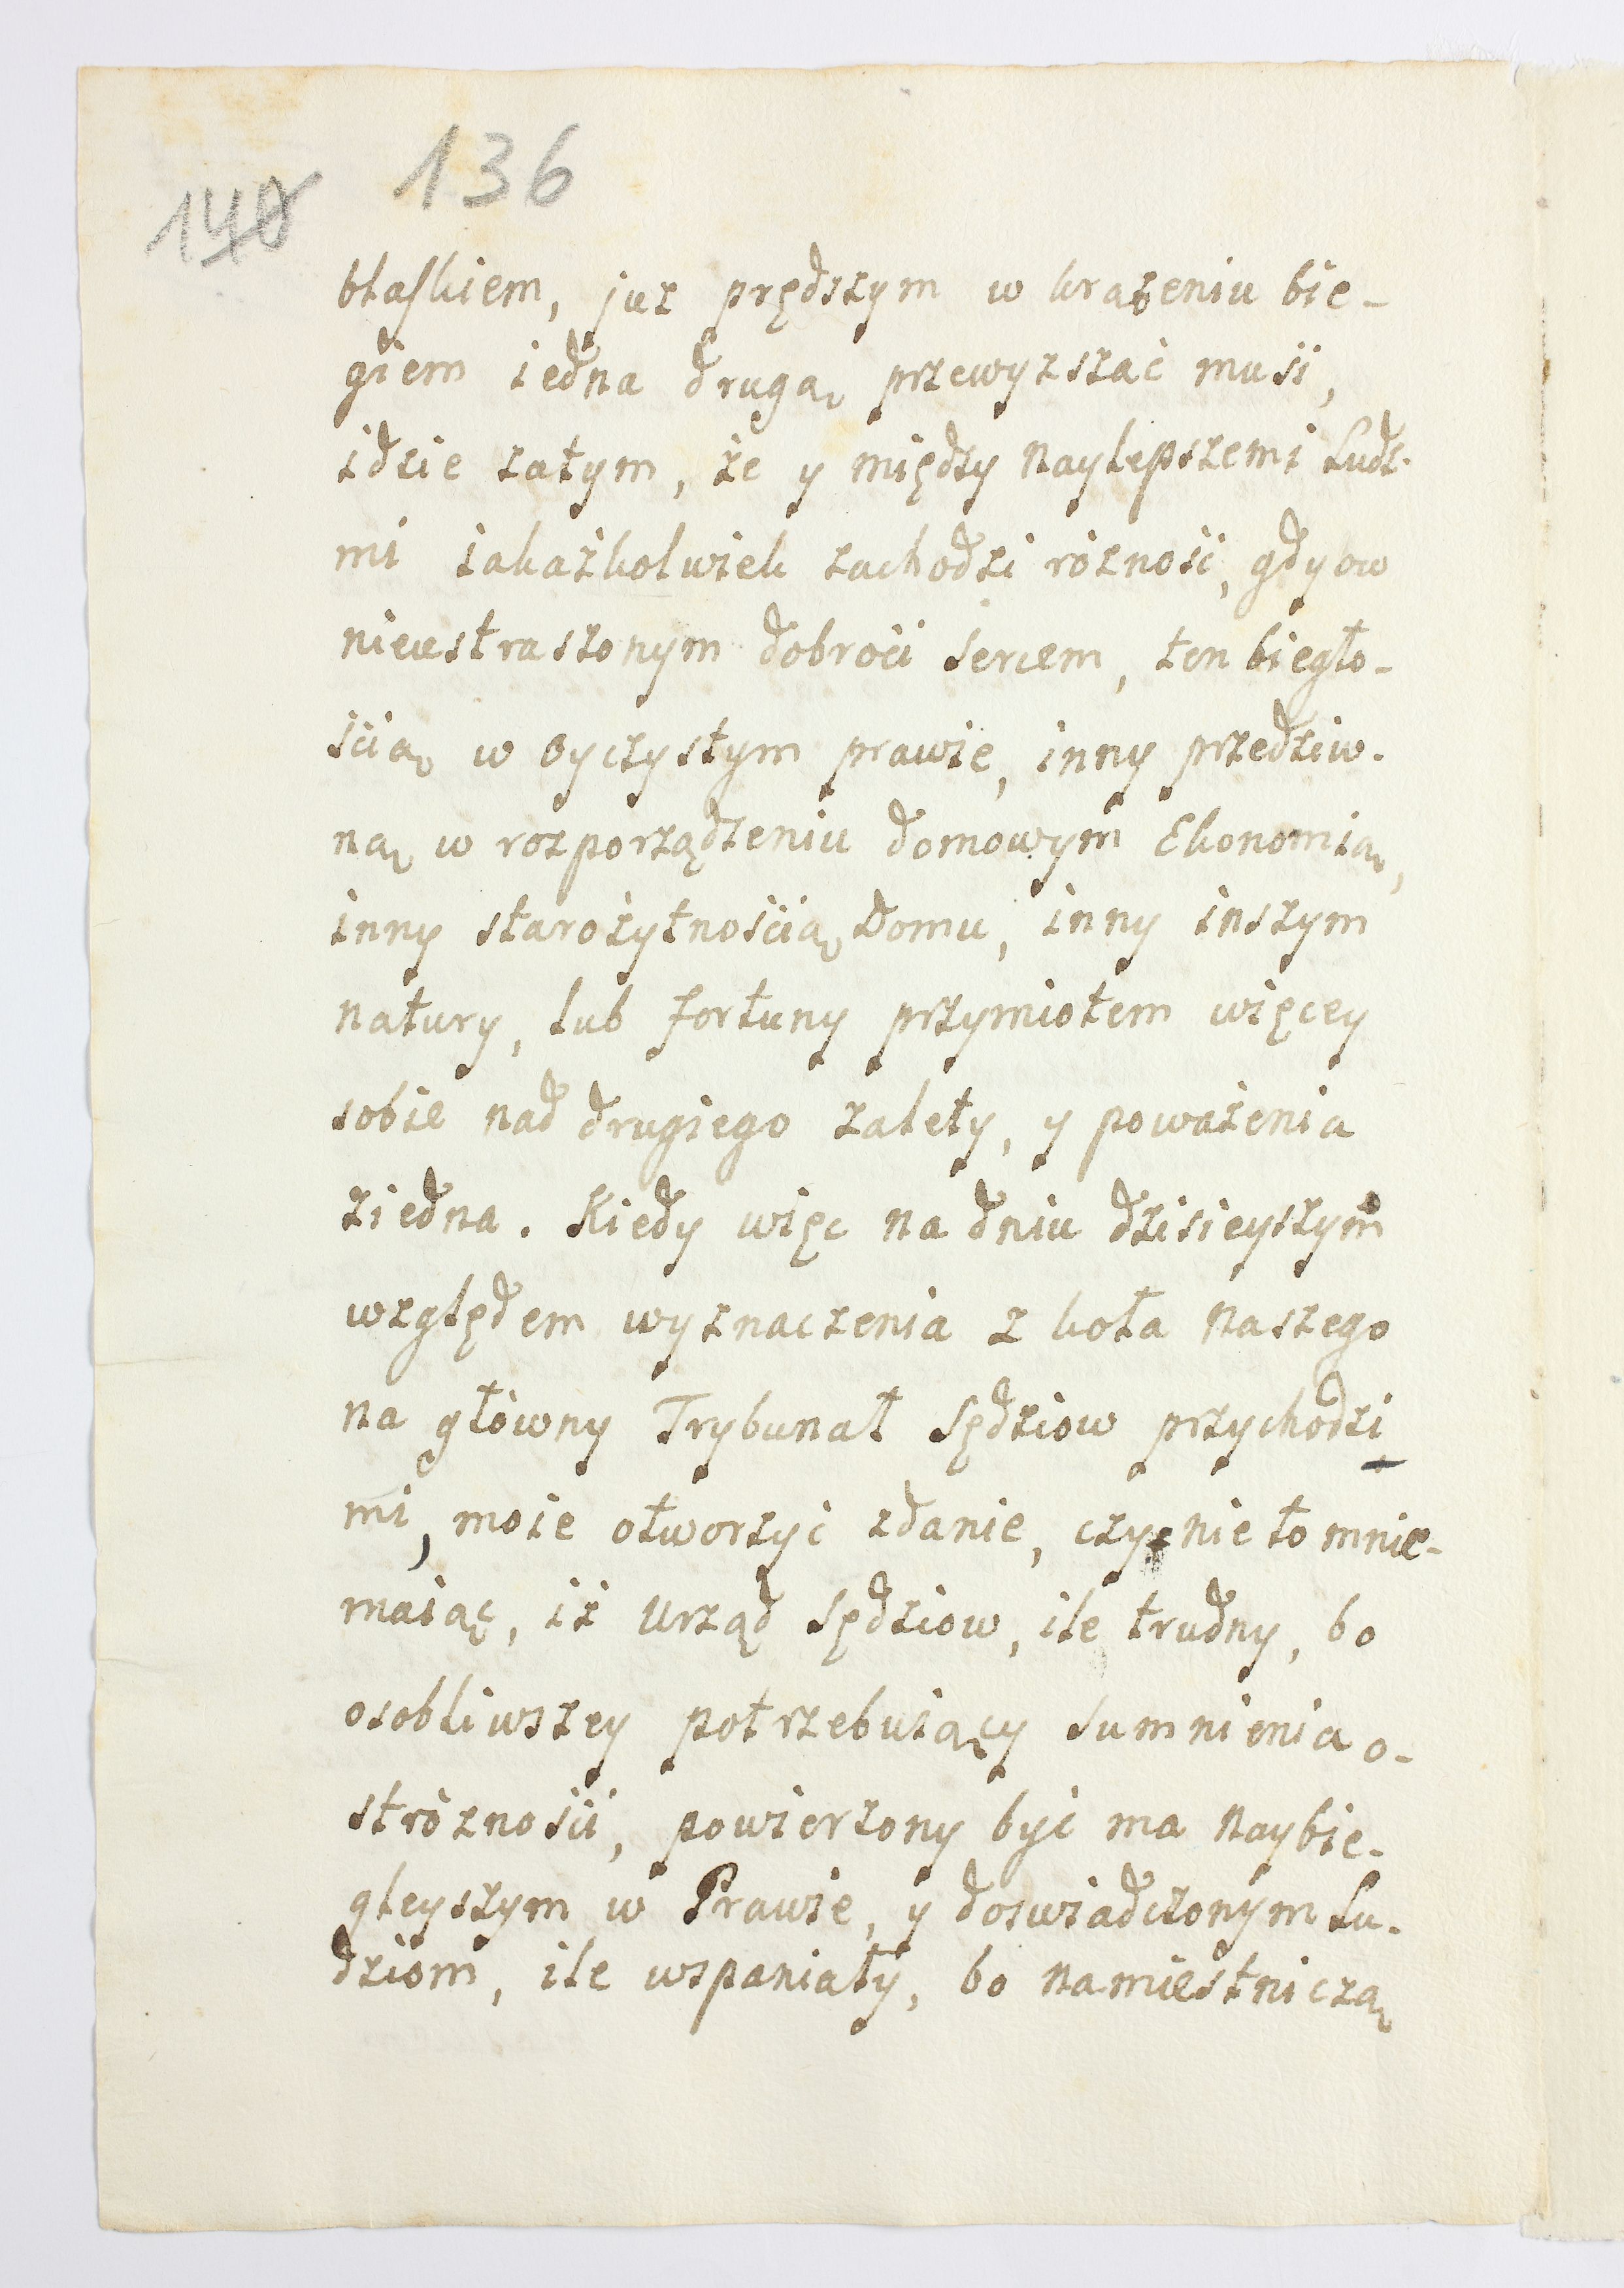 136
140
błaskiem, juz prędszym w krążeniu bie-
giem iedna drugą przewyzszać musi,
idzie zatym, że y między naylepszemi ludź-
mi iakażkolwiek zachodzi różność, gdy ow
nieustraszonym dobroci sercem, ten biegło-
ścią w oyczystym prawie, inny przedziw-
ną w rozporządzeniu domowym Ekonomią,
inny starożytnością Domu, inny inszym
natury, lub fortuny przymiotem więcey
sobie nad drugiego zalety, y poważenia
ziedna. Kiedy więc na dniu dzisieyszym
względem wyznaczenia z koła naszego
na główny Trybunał Sędziow przychodzi
mi, moie otworzyć zdanie, czynię to mnie-
maiąc, iż Urząd Sędziow, ile trudny, bo
osobliwszey potrzebuiący sumnienia o-
stróżności, powierzony być ma naybie-
gleyszym w Prawie, y doswiadczonym lu-
dziom, ile wspaniały, bo namiestniczą